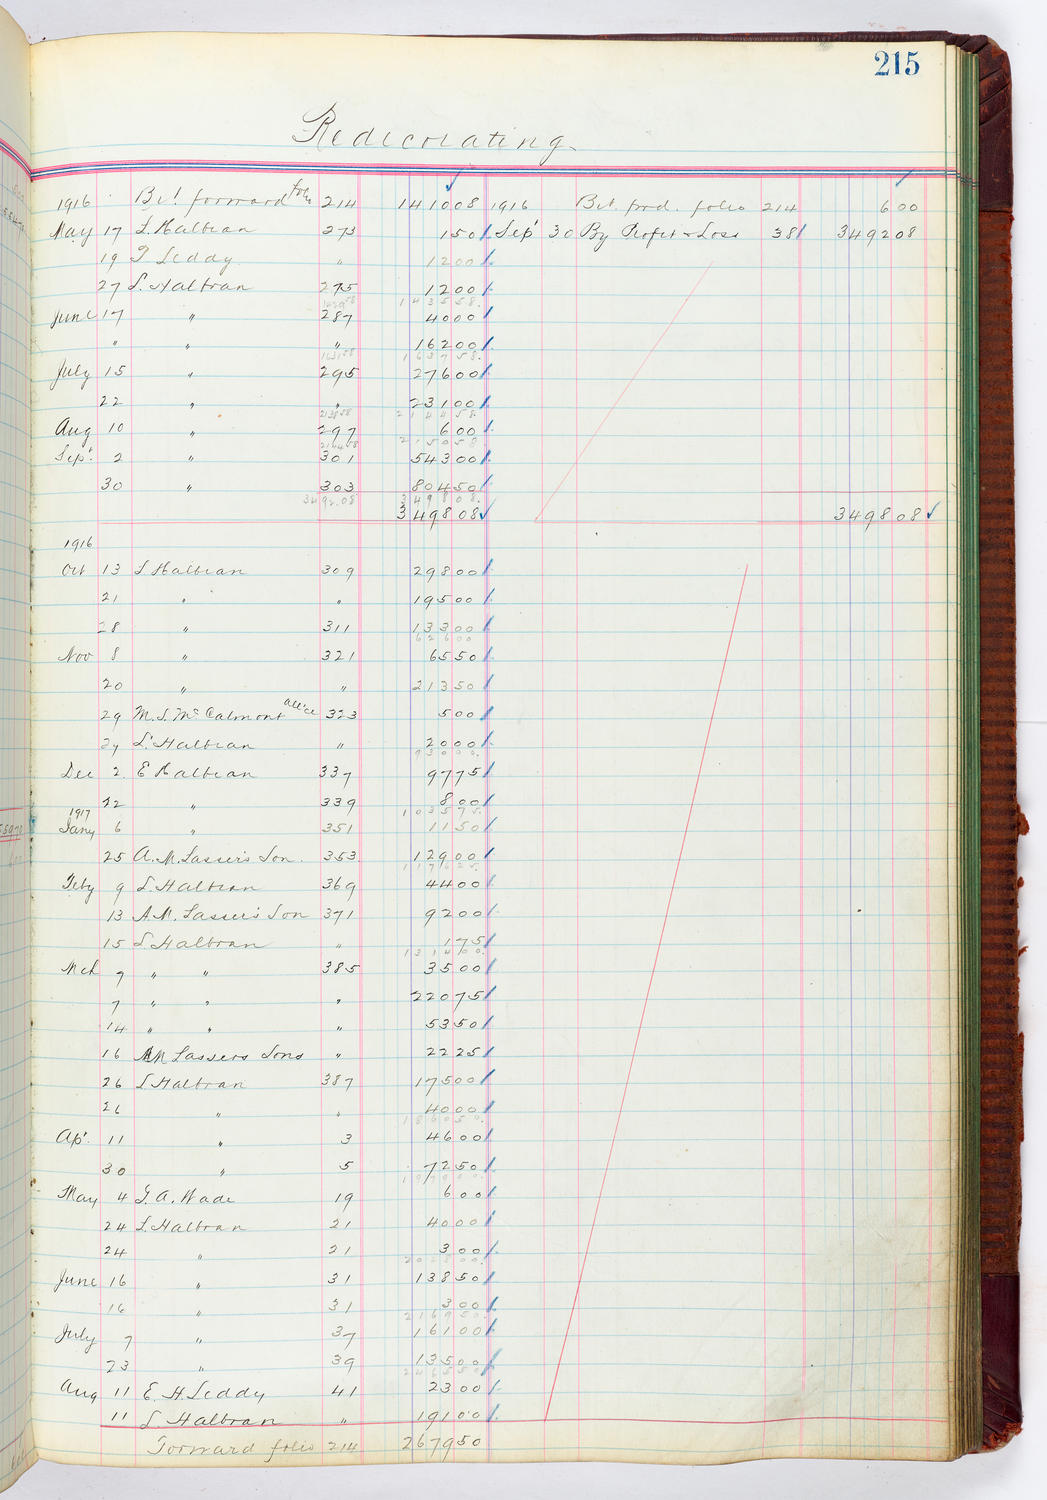 215
Redecorating
1916 Bt. forward folio 214 1410 08 1916 Bt. frd. folio 214 6 00
May 17 L. Halbran 273 1 50 Sep' 30 By Profit & Loss 381 3492 08
19 T Leddy " 12 00
27 L. Halbran 275 12 00
1435 58
June 17 " 287 40 00
" " " 162 00
1637 58
July 15 " 295 276 00
22 " " 231 00
2138 58 2144 58
Aug 10 " 297 6 00
2150 58
Sep'. 2 " 301 543 00
30 " 303 804 50
3492.08 3498 08
3498 08 3498 08
1916
Oct 13 L Halbran 309 298 00
21 " " 195 00
28 " 311 133 00
626 00
Nov 8 " 321 65 50
20 " " 213 50
29 M. J. McCalmont 323 5 00
29 L. Halbran " 20 00
930 00
Dec 2 E Halbran 337 97 75
12 " 339 8 00
1035 75
1917
Jany 6 " 351 11 50
25 A. M. Lasser's Son. 353 129 00
1176 25
Feby 9 L. Halbran 369 44 00
13 A.M. Lasser's Son 371 92 00
15 L. Halbran " 1 75
1314 00
Mch 7 " " 385 35 00
7 " " " 220 75
14 " " " 53 50
16 AM Lassers Sons " 22 25
26 L Halbran 387 175 00
26 " " 40 00
1860 50
Ap'. 11 " 3 46 00
30 " 5 72 50
1979 00
May 4 J. A. Wade 19 6 00
24 L. Halbran 21 40 00
24 " 21 3 00
2028 00
June 16 " 31 138 50
16 " 31 3 00
2169 50
July 7 " 37 161 00
23 " 39 135 00
2465 50
Aug 11 E. H. Leddy 41 23 00
11 L. Halbran " 191 00
Forward folio 214 2679 50